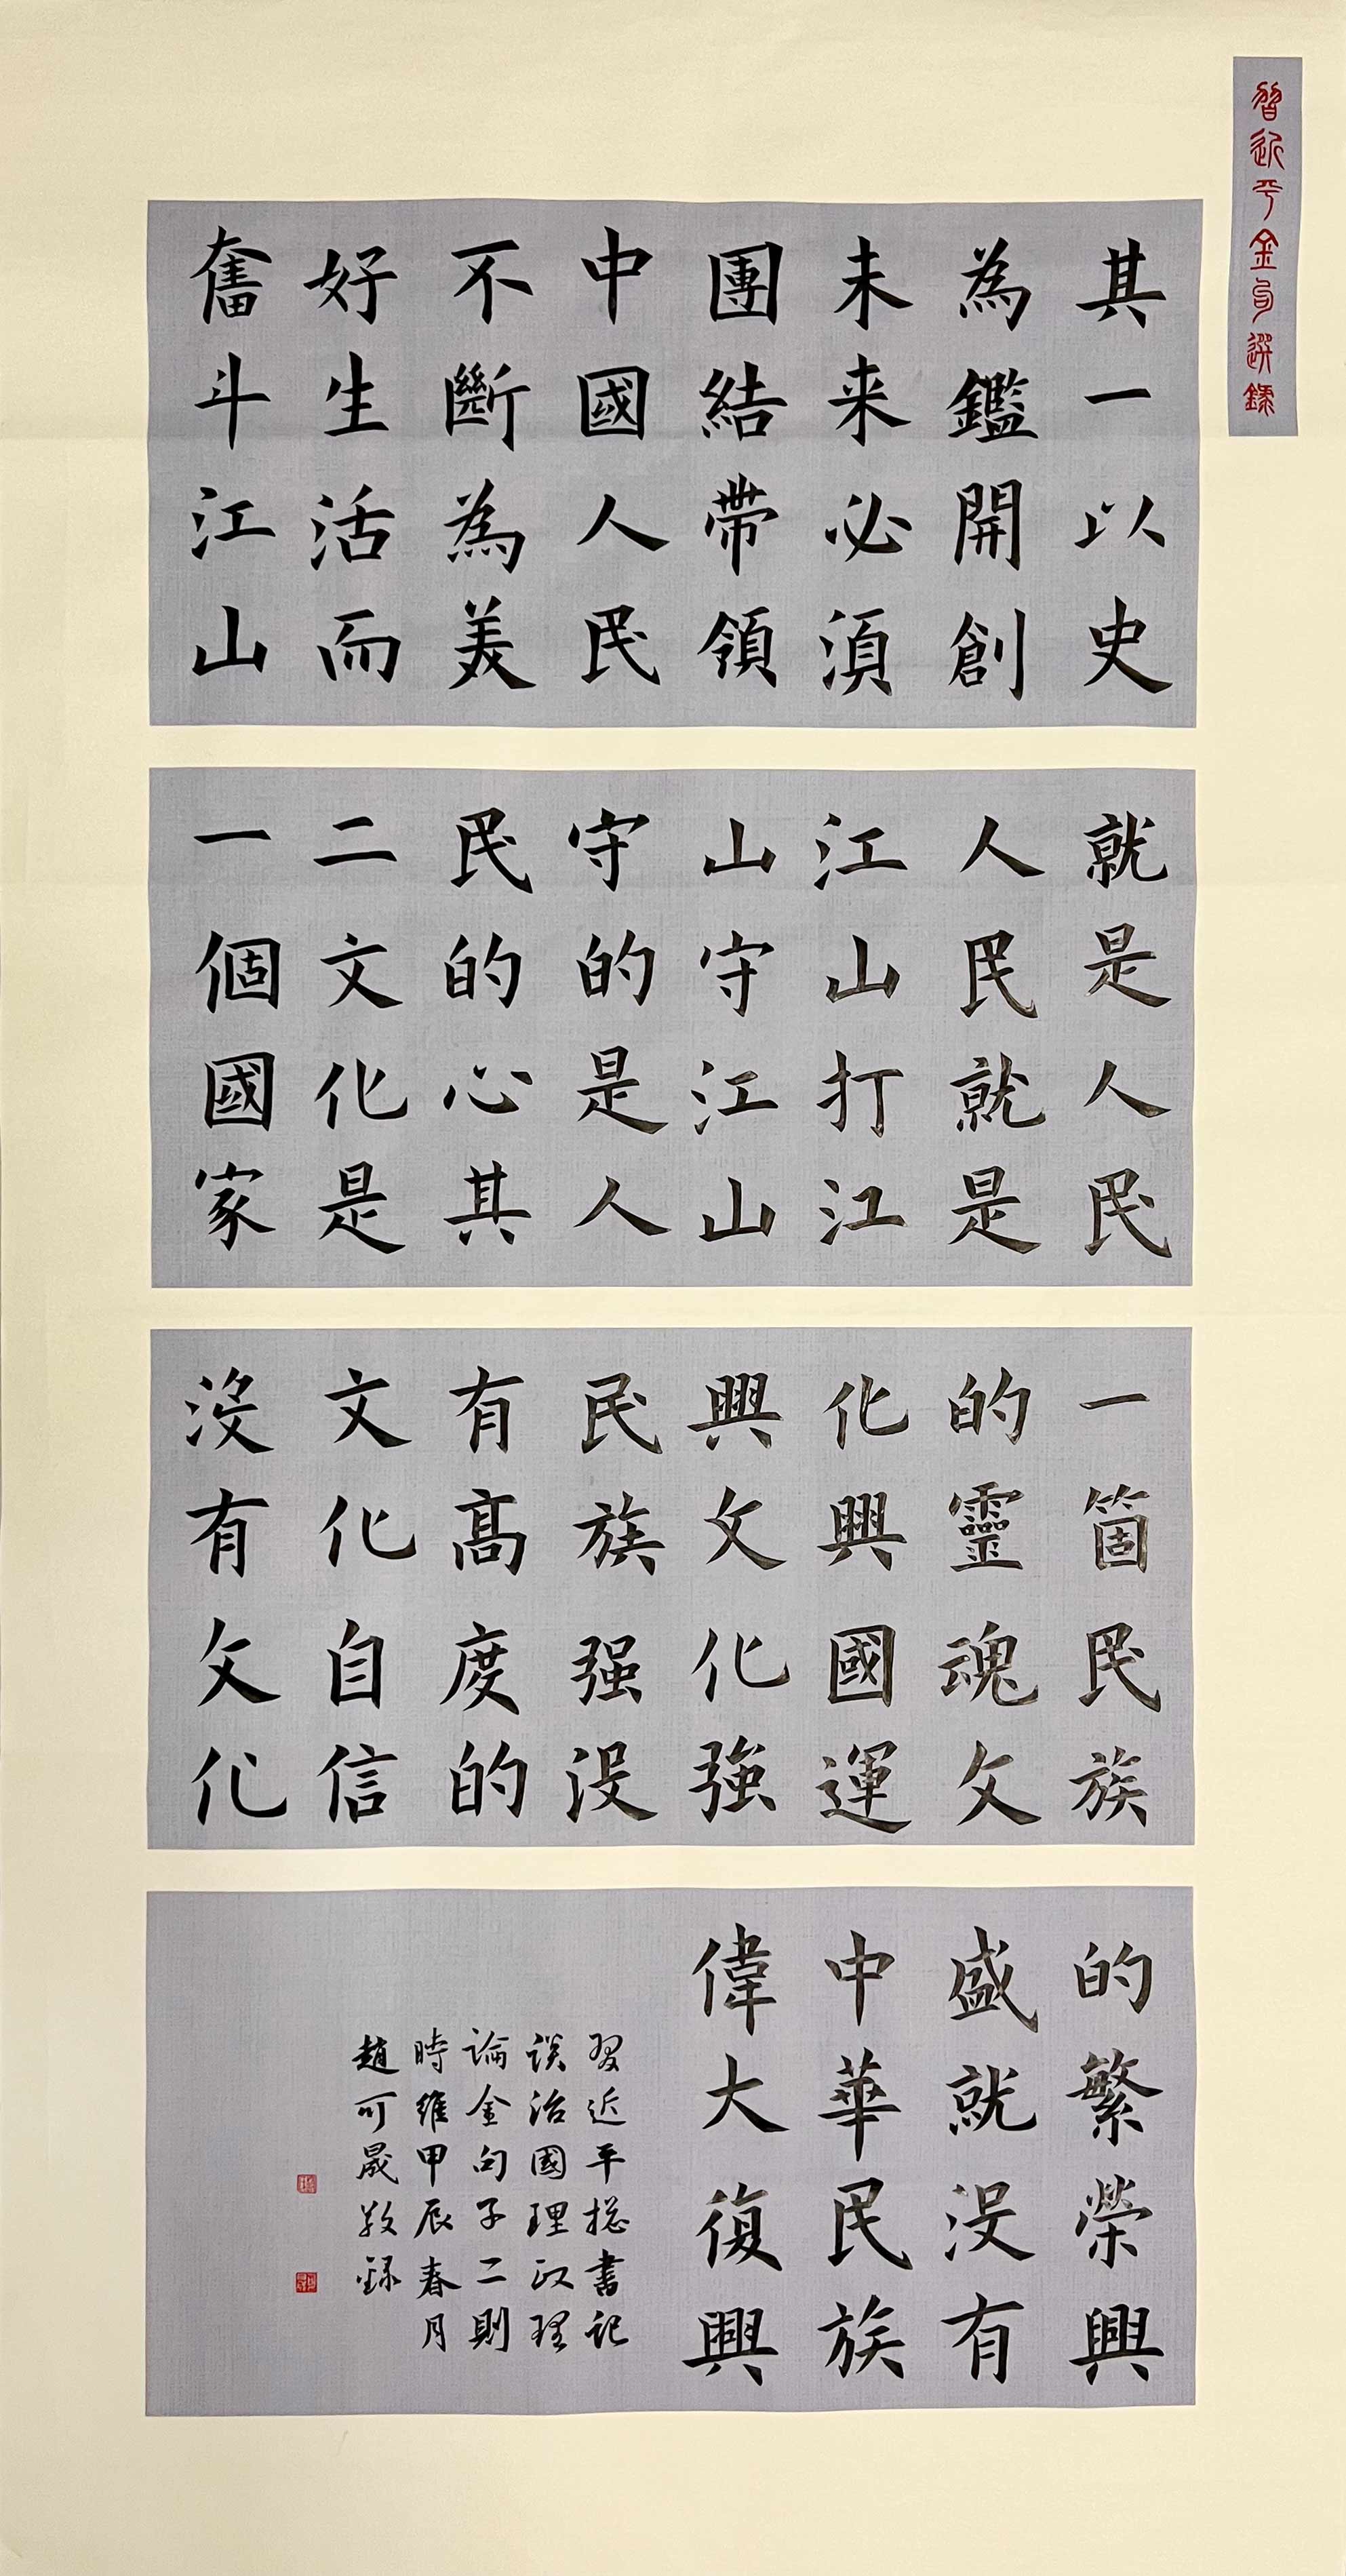 習近平金句選錄
其一以史
為鑑開創
未来必須
團結带領
中國人民
不斷為美
好生活而
奮斗江山
就是人民
人民就是
江山打江
山守江山
守的是人
民的心其
二文化是
一個國家
一箇民族
的靈魂文
化興國運
興文化強
民族强没
有高度的
文化自信
沒有文化
的繁榮興
盛就没有
中華民族
偉大復興
習近平総書記
談治國理政理
論金句子二則
時維甲辰春月
趙可晟敬録